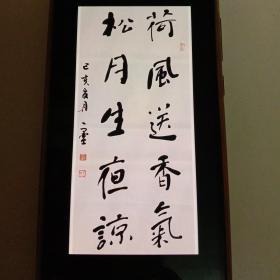 荷風送香氣
松月生夜諒
己亥夏月